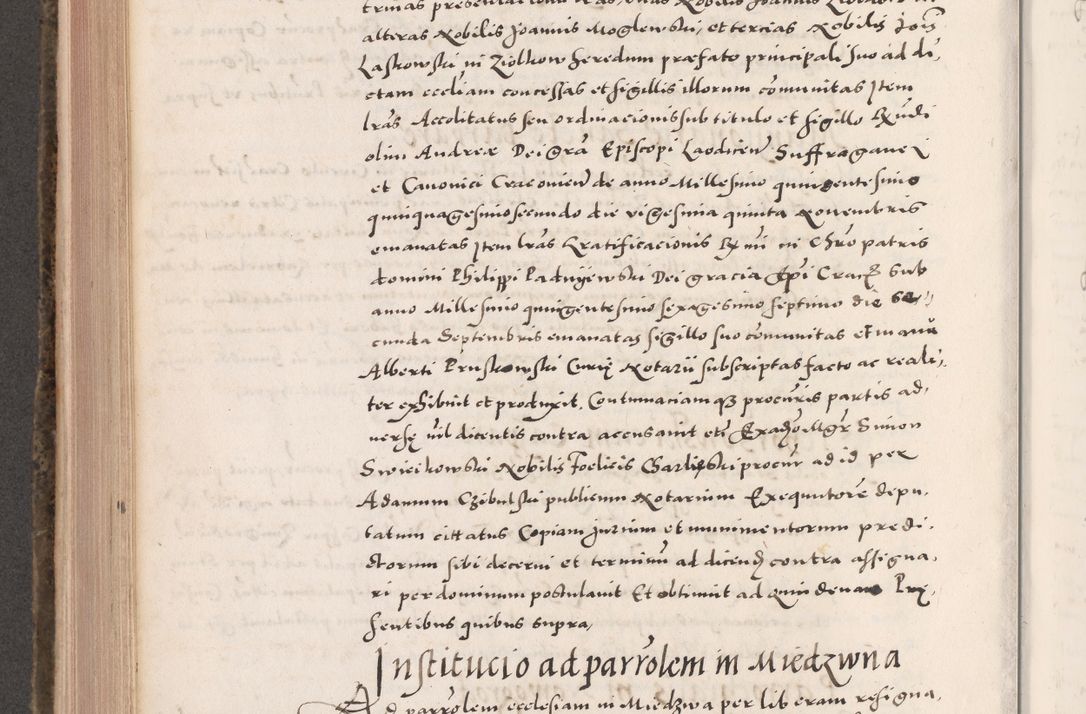 trinas presentationis lras, unas Nobilis Joannis
alteras Nobilis Joannis Moglewski, et tercias Nobilis Jois
Laskowski in Ziolkow heredum præfato principali suo ad di,
ctam eccliam concessas et sigillis illorum comunitas Item
lras Accolitatus seu ordinacionis sub titulo et sigillo Rxndi
olim Andreæ Dei Gra Episcopi Laodicen Suffraganei
et Canonici Cracovien de anno Millesimo quingentesimo
quinquagesimo secundo die vigesima quinta Novembris
emanatas Item lras Gratificacionis Rxmi in Chro patris
domini Philippi Padnijewski Dei gracia Epi Cracz sub
anno Millesimo quingentesimo sexagesimo septimo die se,
cunda Septembris emanatas sigillo suo comunitas et manu
Alberti Pruskowski Curię Notarii subscriptas facto ac reali,
ter exhibuit et produxit. Contumaciamqз procuris partis ad,
versę nil dicentis contra accusavit eti Exadso Mgr Simon
Swieikowski Nobilis Foelicis Garliński procur ad id per
Adamum Czibulski publicum Notarium Exequutore depu,
tatum cittatus Copiam jurium et munimentorum predi,
ctorum sibi decerni et terminu ad dicendz contra assigna,
ri per dominum postulavit Et obtinuit ad quindenam Prę,
sentibus quibus supra,
Institucio ad parrolem in Miedzwna
Ad parrolem ecclesiam in Miedzwa per liberam resigna,